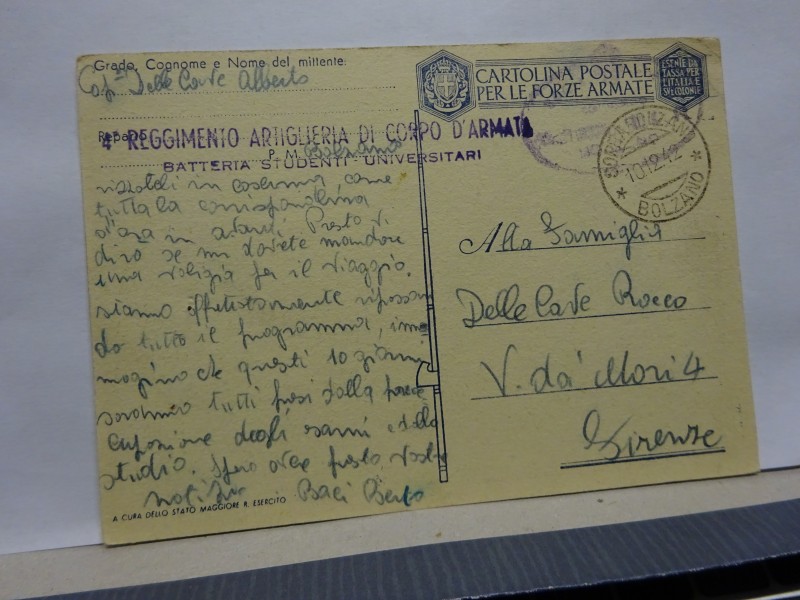 Grado, Cognome e Nome del mittente
Delle Cave Alberto
Reparto
4° REGGIMENTO ARTIGLIERIA DI CORPO D'ARMATA
P. M. Bolzano
BATTERIA STUDENTI UNIVERSITARI
in caserma, come
tutta la corrispondenza
d'ora in avanti. Presto vi
dirò se mi dovete mandare
una valigia per il viaggio.
siamo affrettatamente ripassan
do tutto il programma, imma
magino che questi 10 giorni
saranno tutti presi dalla
degli esami e dello
studio. Spero avere presto vostre
notizie Baci Berto
A CURA DELLO STATO MAGGIORE R. ESERCITO
CARTOLINA POSTALE
PER LE FORZE ARMATE
ESENTE DA
TASSA PER
L'ITALIA E
SUE COLONIE
10.12.42
BOLZANO
Alla Famiglia
Delle Cave Rocco
V. da' Mori 4
Firenze